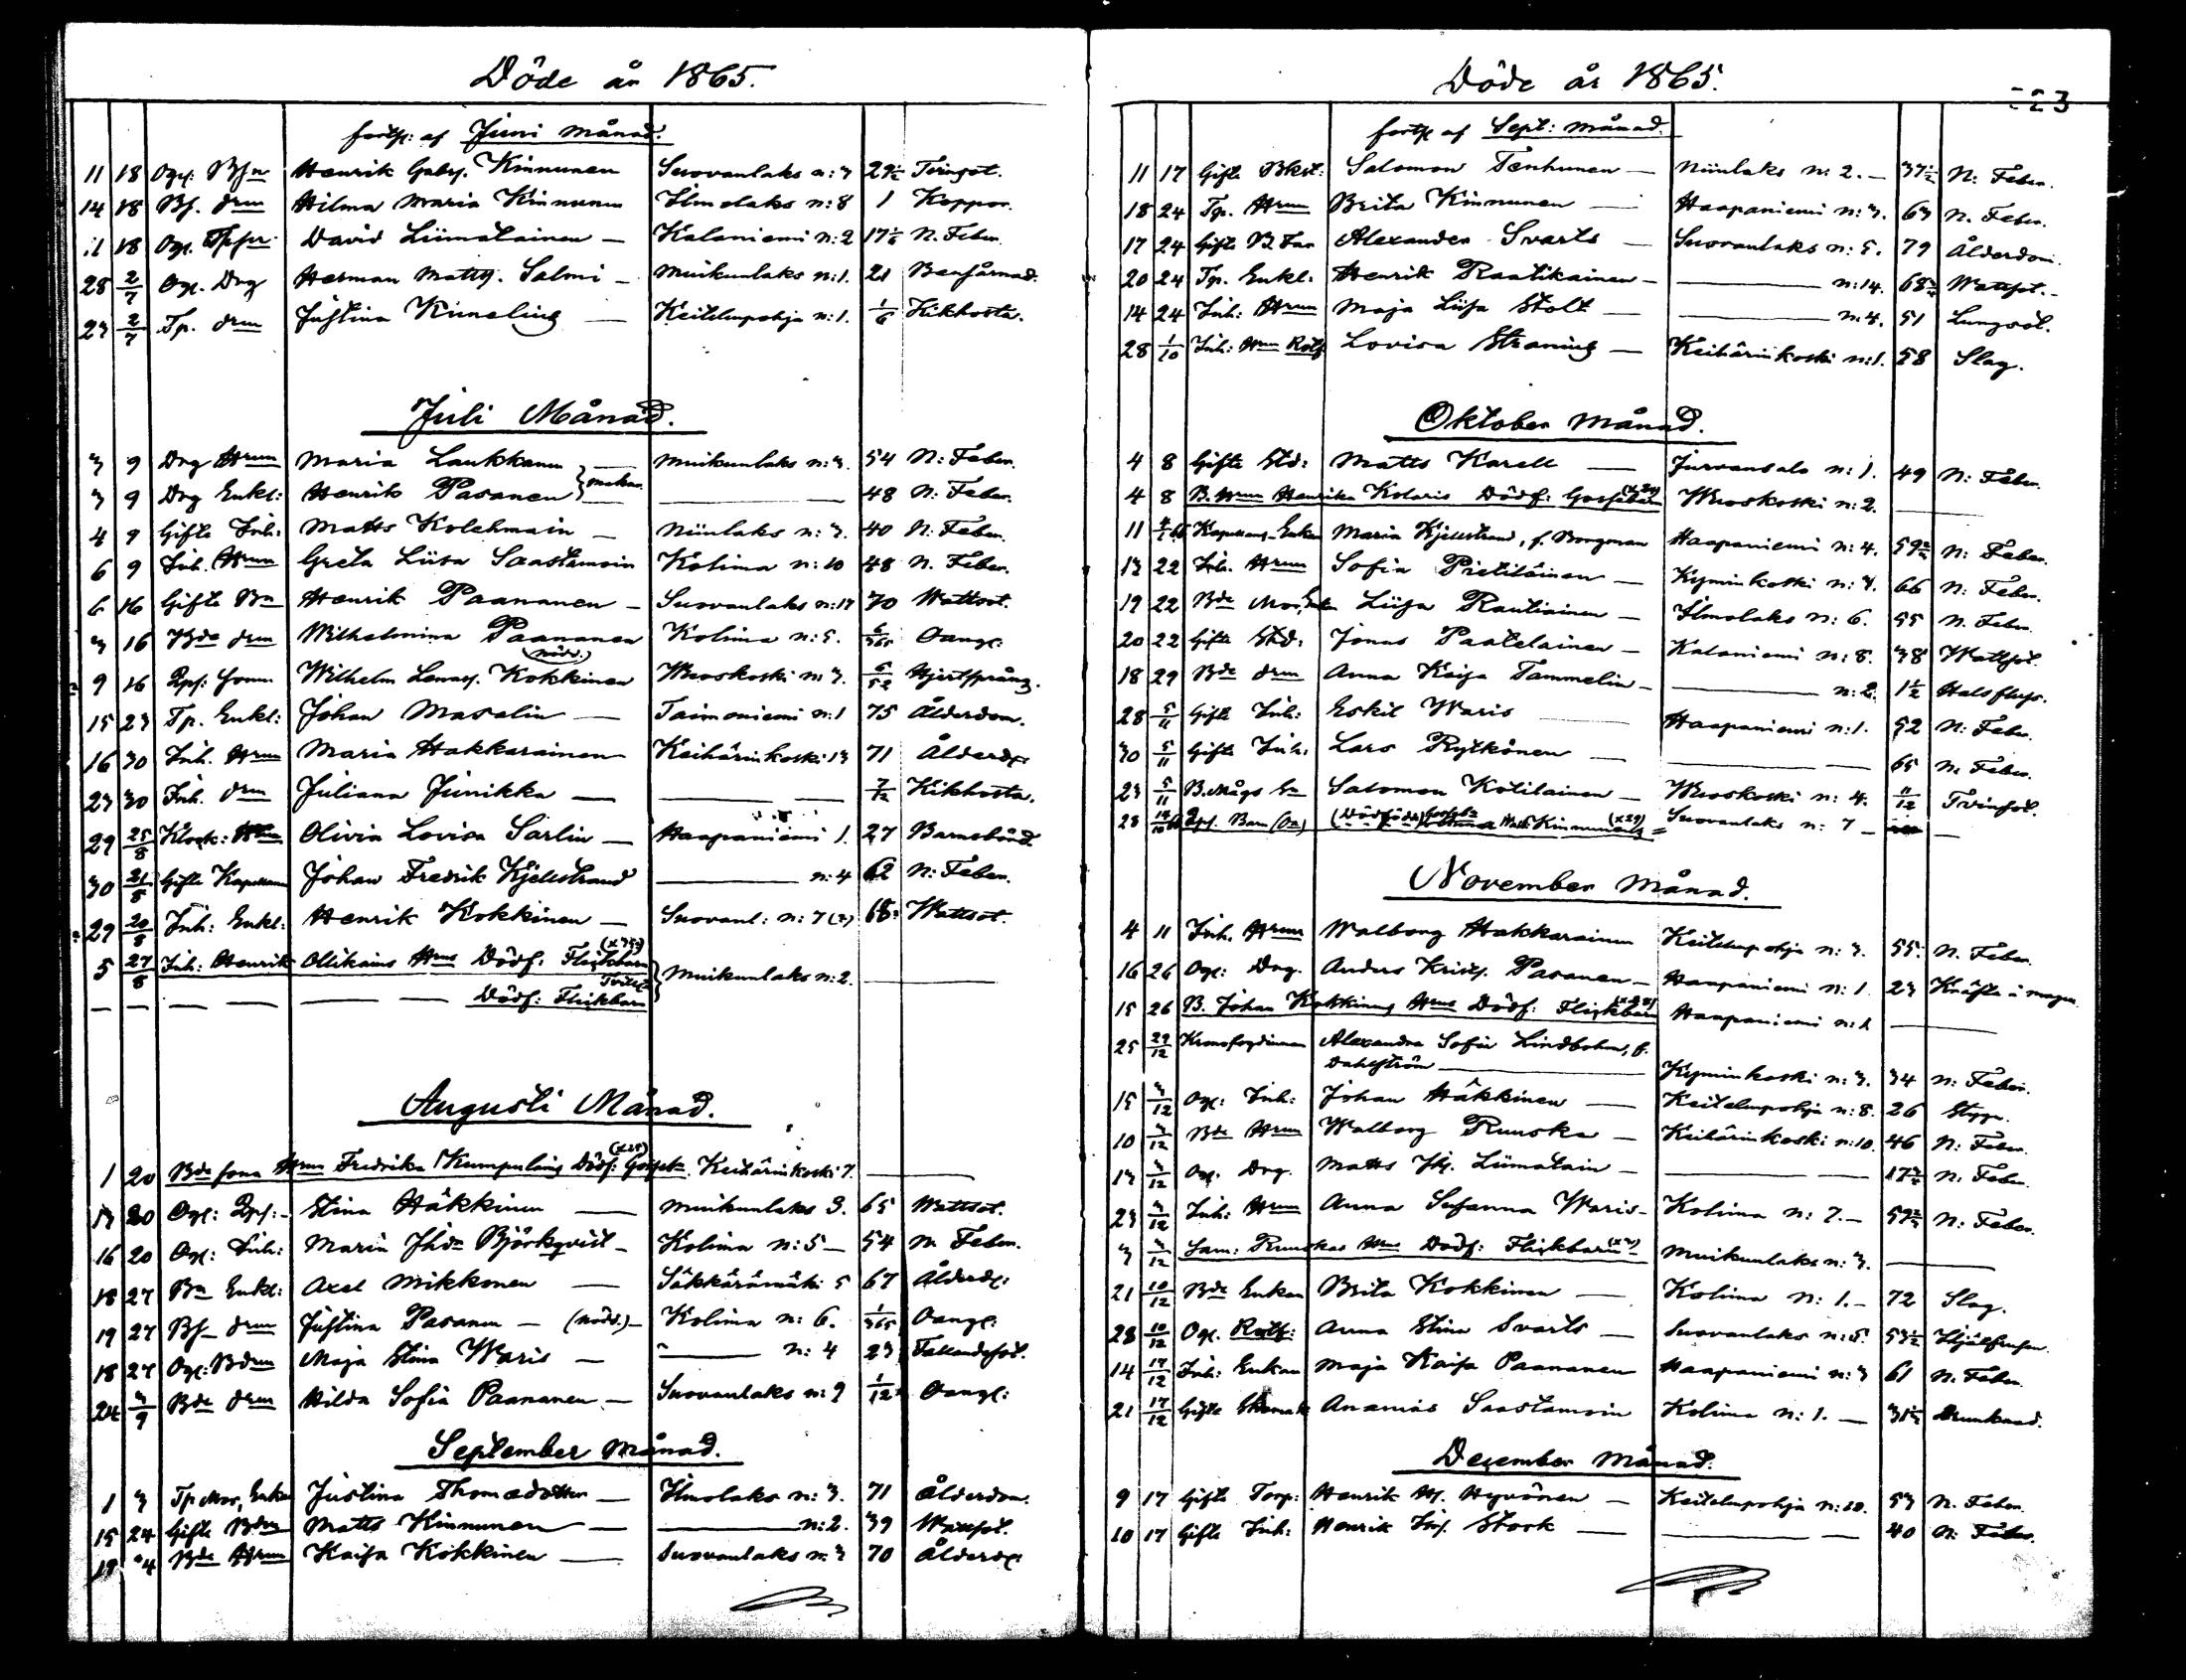 Döde år 1865.
forts: af Juni månad.
11 18 Ogf: Bfsn Henrik Gabrs. Kinnunen Suovanlaks n: 3 29½ Tvinsot.
14 18 Bf. drm Hilma Maria Kinnunen Ilmolaks n: 8 1 Koppor.
11 18 Ogf. David Liimatainen — Kalaniemi n: 2 17 N. Feber.
28 2/7 Ogf. Drg Herman Matts. Salmi — Muikunlaks n: 1. 21 Benfårnad.
23 2/7 Tp. drm Justina Kimelius — Keitelepohja n: 1. 1/6 Kikhosta.
Juli Månad.
3 9 Drg Hrun Maria Laukkanen — Muikunlaks n: 3. 54 N: Feber.
3 9 Drg Enkl: Henrik Pasanen — makar — 48 N: Feber.
4 9 Gifte Inh: Matts Kolehmain — Niinlaks n: 3. 40 N: Feber.
6 9 Inh. Hrun Greta Liisa Saastamoin Kolima n: 10 48 N. Feber.
6 16 Gifte Bn Henrik Paananen — Suovanlaks n: 17 70 Wattsot.
3 16 Bde drm Wilhelmina Paananen (nöd.) Kolima n: 5. 6/365 Oangf:
9 16 Wilhelm Lennrs. Kokkinen Wuoskoski n: 3. 5/52 Hjertsprång.
15 23 Tp. Enkl: Johan Masalin — Taimoniemi n: 1 75 Ålderdom.
16 30 Inh. Hrun Maria Hakkarainen Keihärinkoski 13 71 Ålderd:
23 30 Inh. drm Juliana Jinikka — — 7/12 Kikhosta.
29 25/8 Klock: Hrun Olivia Lovisa Sarlin — Haapaniemi 1. 27 Barnsbörd.
30 21/8 Gifte Kapellanen Johan Fredrik Kjellstrand — n: 4 62 N: Feber.
29 20/8 Inh: Enkl: Henrik Kokkinen — Suovanl: n: 7 (2) 68 Wattsot.
5 27/8 Inh: Henrik Ollikains Hrus Dödf: Flickbarn Muikunlaks n: 2. —
— — — — Dödf: Flickbarn
Augusti Månad.
1 20 Bde sons Hrun Fredrika Kumpulins Dödf: Gossebn. Keihärinkoski 7. —
13 20 Ogf: Stina Häkkinen — Muikunlaks 3. 65 Wattsot.
16 20 Ogf: Inh: Maria Jhdr Björkqvist — Kolima n: 5 — 54 N. Feber.
18 27 Bn Enkl: Axel Mikkonen — Säkkärämäki 5 67 Ålderd:
19 27 Bf— drm Justina Pasanen — (nöd.) — Kolima n: 6. 1/365 Oangf:
18 27 Ogf: Bdrm Maja Stina Waris — — n: 4 23 Fallandesot.
24 3/9 Bde drm Hilda Sofia Paananen — Suovanlaks n: 9 1/12 Oangf:
September månad.
1 3 Tp. Mor, Enka Justina Thomedotter — Ilmolaks n: 3. 71 Ålderdom.
15 24 Gifte Matts Kinnunen — — n: 2. 39 Wattsot.
19 24 Bde Hrun Kaisa Kokkinen — Suovanlaks n: 3 70 Ålderd:
Döde år 1865.
223
forts af Sept: månad.
11 17 Gifte Salomon Tenhunen — Niinlaks n: 2. — 37½ N: Feber.
18 24 Tp. Hrun Brita Kinnunen — Haapaniemi n: 3. 63 N. Feber.
17 24 Gifte B. Far Alexander Svarts — Suovanlaks n: 5. 79 Ålderdom.
20 24 Tp. Enkl: Henrik Raatikainen — — n: 14. 68 Wattsot. —
14 24 Inh: Hrun Maja Liisa Stolt — — n: 4. 51 Lungsot.
28 1/10 Inh: Hrun Rotf Lovisa Straning — Keihärinkoski n: 1. 58 Slag.
Oktober månad.
4 8 Gifte Std: Matts Karell — Jurvansalo n: 1. 49 N: Feber.
4 8 B. Hrun Henrika Kolaris Dödf: Gossebarn Wuoskoski n: 2. —
11 Kapellans-Enkan Maria Kjellstrand, f. Borgman Haapaniemi n: 4. 59 N: Feber.
13 22 Inh. Hrun Sofia Pietiläinen — Kyminkoski n: 3. 66 N: Feber.
19 22 Bde Mor, Enkan Liisa Rautiainen — Ilmolaks n: 6. 55 N. Feber.
20 22 Gifte Std: Jonas Paatelainen — Kalaniemi n: 8. 38 Wattsot.
18 29 Bde drm Anna Kaisa Tammelin — — n: 2. 1½ Halsfluss.
28 5/11 Gifte Inh: Eskil Waris — Haapaniemi n: 1. 52 N: Feber.
30 5/11 Gifte Inh: Lars Rytkönen — — 65 N. Feber.
23 5/11 B. Mågs Sn Salomon Kotilainen — Wuoskoski n: 4. 11/12 Tvinsot.
28 Barn (Dödfödd) Kinnunens Suovanlaks n: 7 — —
November månad.
4 11 Inh. Hrun Walborg Hakkarainen Keitelepohja n: 3. 55. N. Feber.
16 26 Ogf: Drg. Anders Krists. Pasanen — Haapaniemi n: 1. 23 Kräfta i magen
15 26 B. Johan Kokkinens Hrus Dödf: Flickbarn Haapaniemi n: 1 —
25 29/12 Kronofogdinnan Alexandra Sofia Lindbohm, f.
Dahlström — Kyminkoski n: 3. 34 N: Feber.
15 3/12 Ogf: Inh: Johan Häkkinen — Keitelepohja n: 8. 26 Stygn.
10 3/12 Bde Hrun Walborg Ruuska — Keihärinkoski n: 10. 46 N: Feber.
13 3/12 Ogf. Drg. Matts Liimatain — — 17 N: Feber.
23 3/12 Inh: Hrun Anna Susanna Waris — Kolima n: 7. — 59 N: Feber.
3 3/12 Sam: Ruuskas Hrus Dödf: Flickbarn Muikunlaks n: 3. —
21 10/12 Bde Enkan Brita Kokkinen — Kolima n: 1. — 72 Slag.
28 10/12 Ogf. Rotf: Anna Stina Svarts — Suovanlaks n: 5. 53½ Ihjälfrusen.
14 17/12 Inh: Enkan Maja Kaisa Paananen Haapaniemi n: 3 61 N. Feber.
21 17/12 Gifte Ananias Saastamoin Kolima n: 1. — 31½ Drunknad.
December månad.
9 17 Gifte Torp: Henrik Hyvönen — Keitelepohja n: 10. 53 N. Feber.
10 17 Gifte Inh: Henrik Stork — — 40 N: Feber.